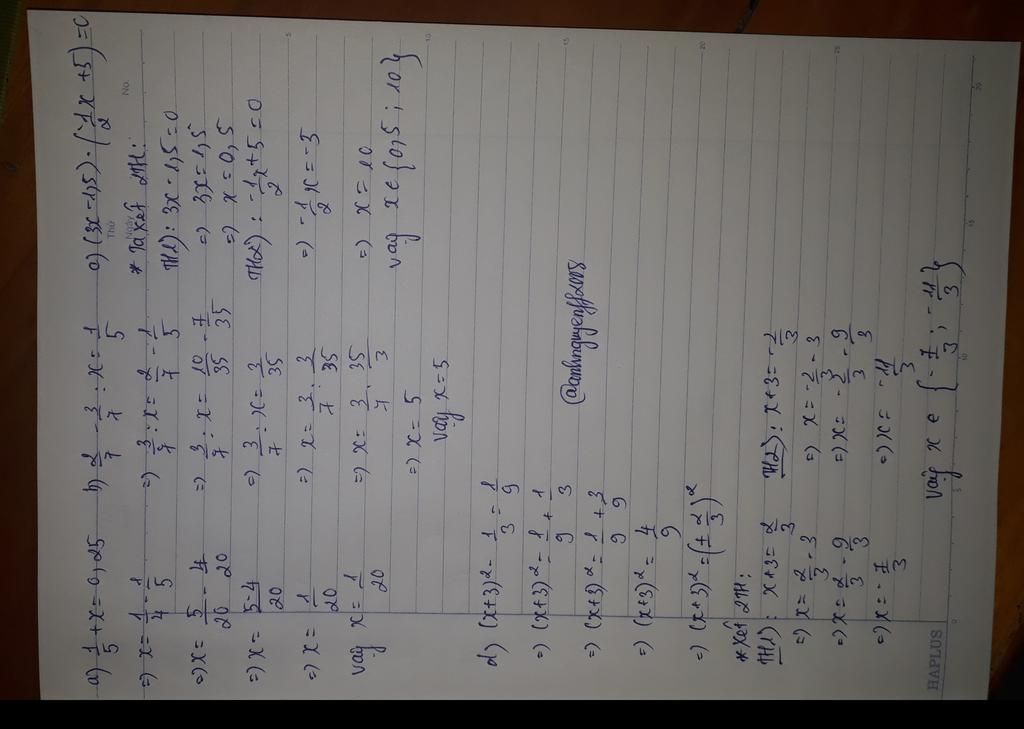 a) 1/5 + x = 0,25
=) x = 1/4 - 1/5
=) x = 5/20 - 4/20
=) x = 5-4/20
=) x = 1/20
Vậy x = 1/20
b) 2/7 - 3/7 : x = 1/5
=) 3/7 : x = 2/7 - 1/5
=) 3/7 : x = 10/35 - 7/35
=) 3/7 : x = 3/35
=) x = 3/7 : 3/35
=) x = 3/7 . 35/3
=) x = 5
Vậy x = 5
Thứ
Ngày
No.
c) (3x - 1,5) . (-1/2 x + 5) = 0
* Ta xét 2TH:
TH1): 3x - 1,5 = 0
=) 3x = 1,5
=) x = 0,5
TH2): -1/2 x + 5 = 0
=) -1/2 x = -5
=) x = 10
Vậy x ∈ {0,5 ; 10}
d) (x+3)² - 1/3 = 1/9
=) (x+3)² = 1/9 + 1/3
=) (x+3)² = 1/9 + 3/9
=) (x+3)² = 4/9
=) (x+3)² = (± 2/3)²
* Xét 2TH:
TH1): x + 3 = 2/3
=) x = 2/3 - 3
=) x = 2/3 - 9/3
=) x = - 7/3
TH2): x + 3 = - 2/3
=) x = - 2/3 - 3
=) x = - 2/3 - 9/3
=) x = - 11/3
Vậy x ∈ { - 7/3 ; - 11/3 }
@anhnguyenff2008
HAPLUS
0 5 10 15 20
5 10 15 20 25